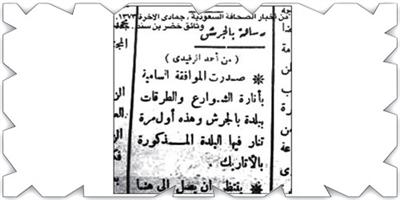 من أخبار الصحافة السعودية , جمادى الآخرة ١٣٧٣,
وثائق خضر بن سند
رسالة بالجرش
(من أحمد الرفيدي)
* صدرت الموافقة السامية
بأنارة الشوارع والطرقات
ببلدة بالجرش وهذه أول مرة
تنار فيها البلدة المذكورة
بالاتاريك .
* ينتظر ان يصل الى هنا